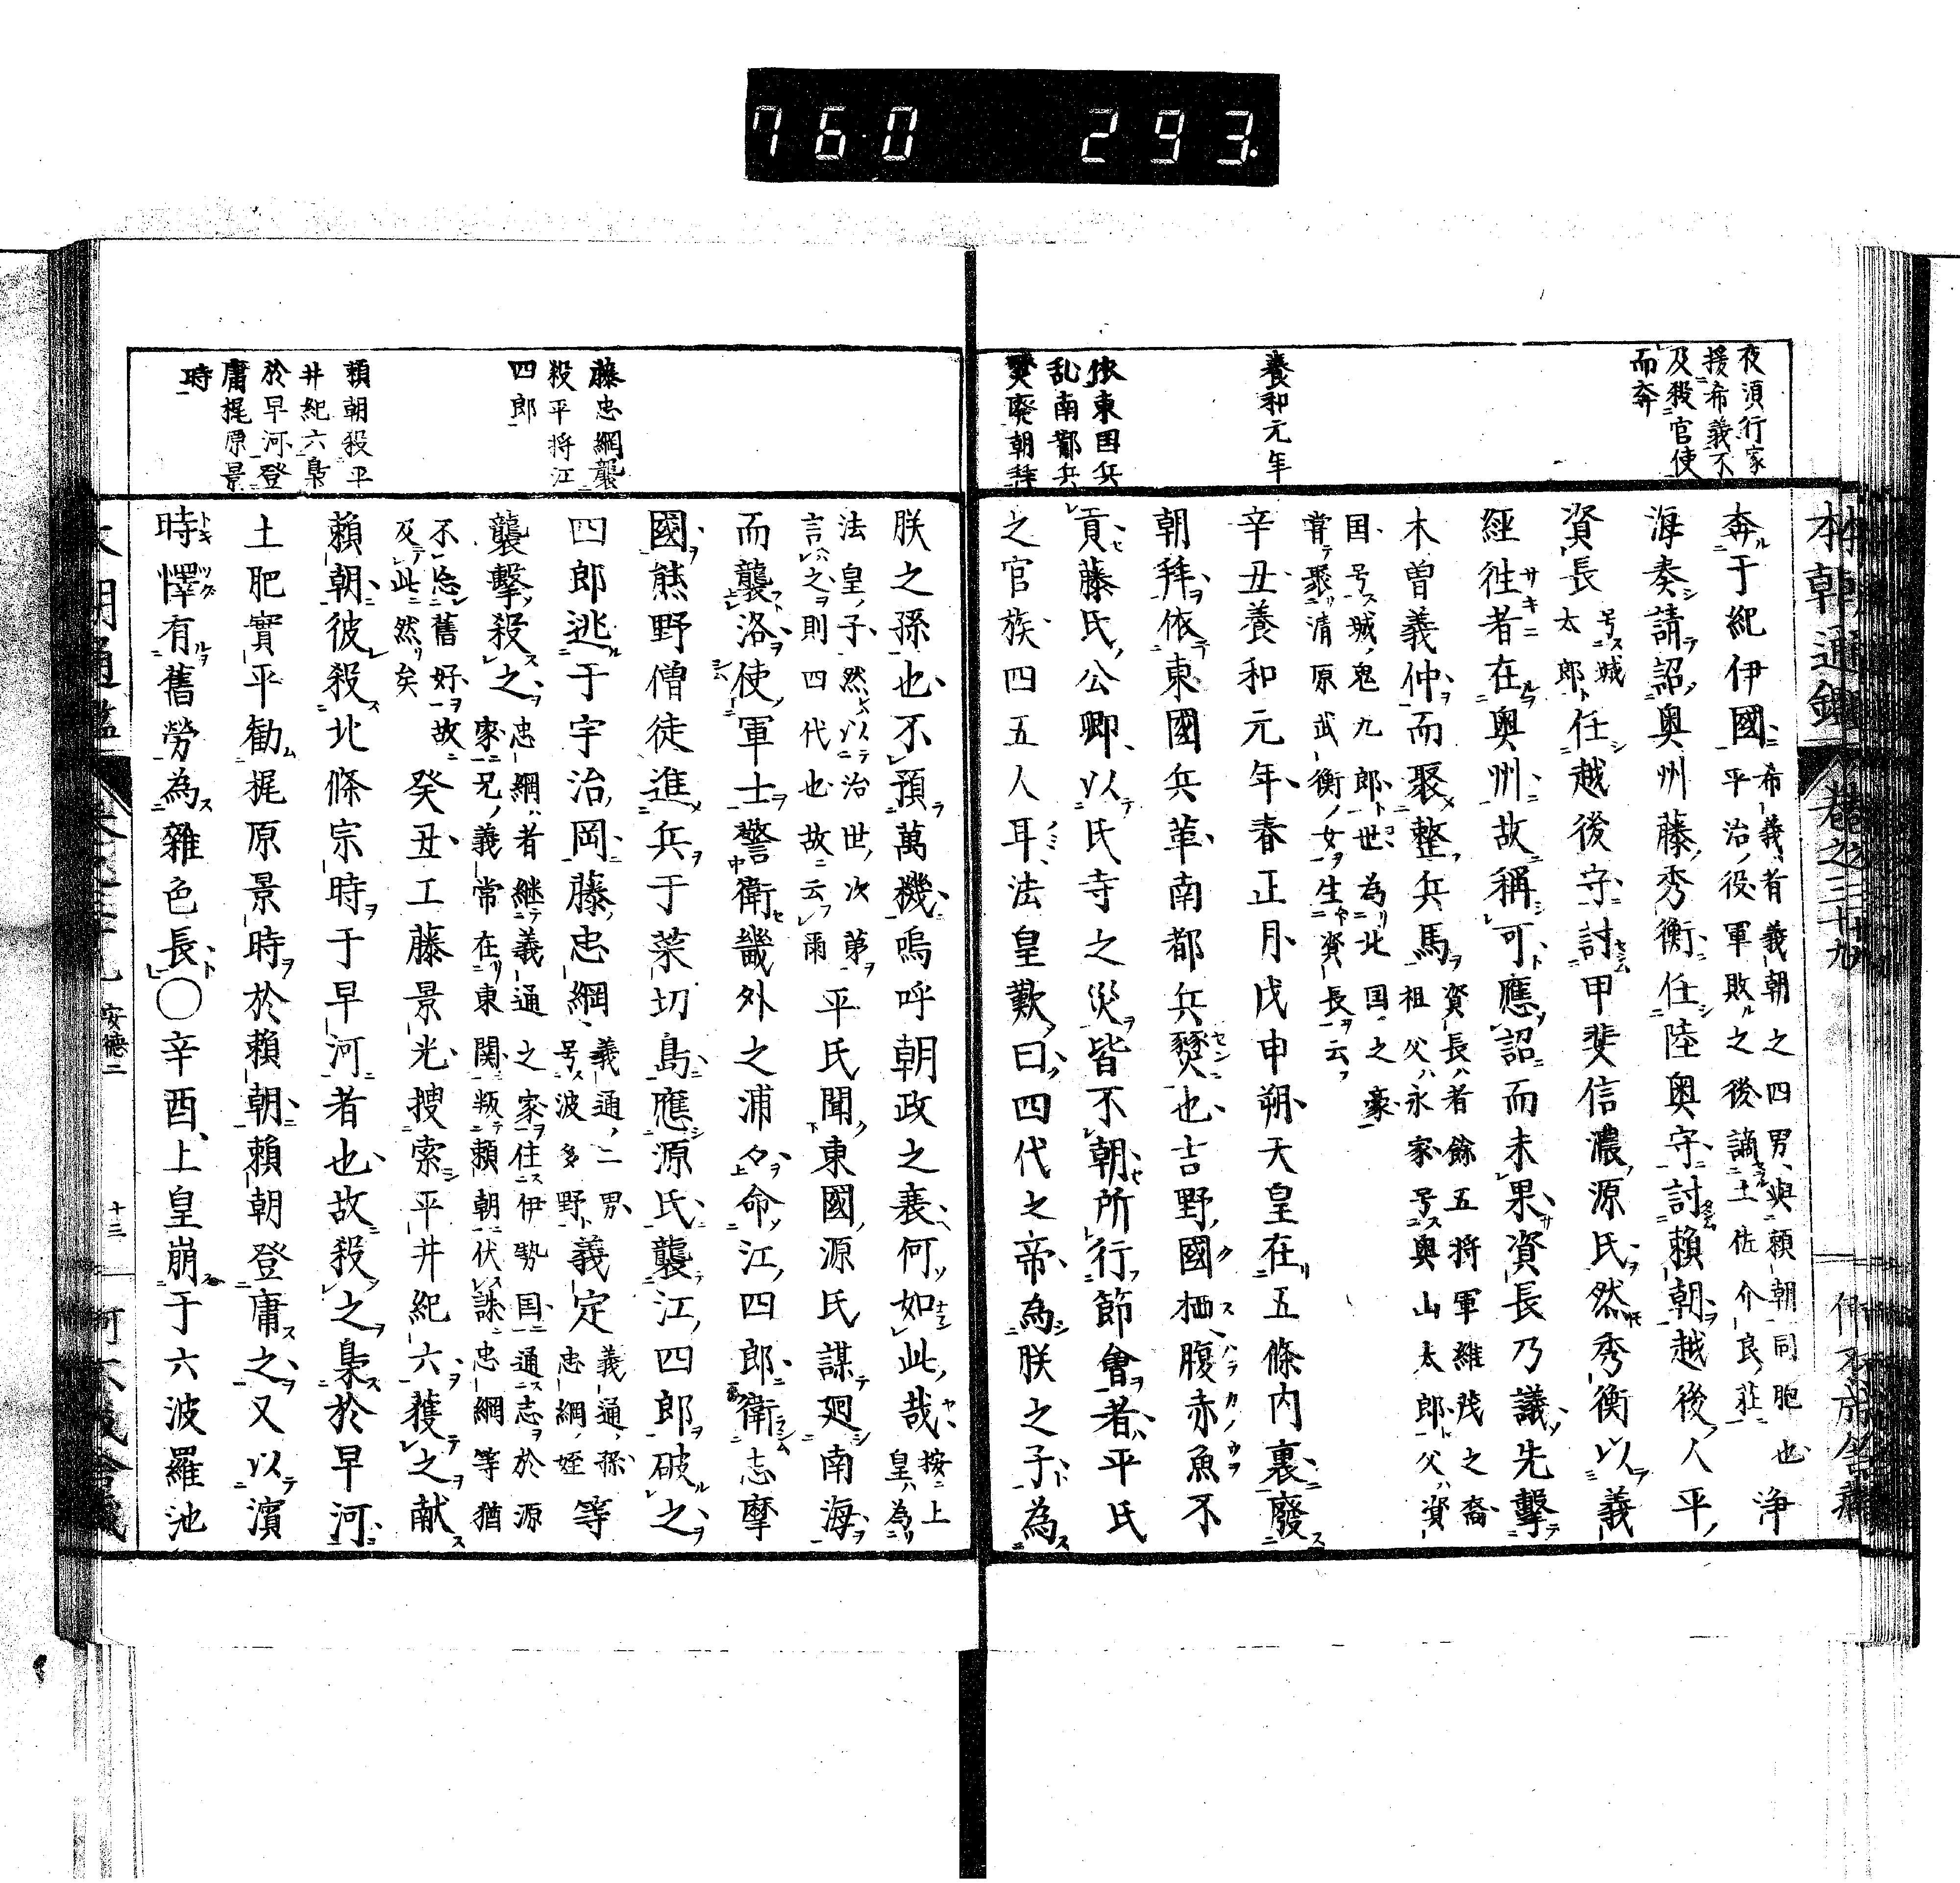 760 293.
夜須行家
援希義不
及殺官使
而奔
養和元年
依東国兵
乱南都兵
燹廢朝拜
奔于紀伊國希義者義朝之四男與頼朝同胞也
平治役軍敗之後謫土佐介良莊浄
海奏請詔奥州藤秀衡任陸奥守討賴朝越後人平
資長号城太郎任越後守討甲斐信濃源氏然秀衡以義
經往者在奥州故稱可應詔而未果資長乃議先擊
木曽義仲而聚整兵馬資長者餘五将軍維茂之裔
祖父永家号奥山太郎父資
国号城鬼九郎世為北国之豪
甞聚清原武衡女生資長云
辛丑養和元年春正月戊申朔天皇在五條内裏廢
朝拜依東國兵革南都兵燹也吉野國栖腹赤魚不
貢藤氏公卿以氏寺之災皆不朝所行節會者平氏
之官族四五人耳法皇歎曰四代之帝為朕之子為
藤忠綱襲
殺平将江
四郎
頼朝殺平
井紀六梟
於早河登
庸梶原景
時
朕之孫也不預萬機嗚呼朝政之衰何如此哉按上
皇為
法皇子然以治世次第
言之則四代也故云爾平氏聞東國源氏謀廻南海
而襲洛使軍士警衛畿外之浦々命江四郎衛志摩
國熊野僧徒進兵于菜切島應源氏襲江四郎破之
四郎逃于宇治岡藤忠綱義通二男
号波多野義定義通孫
忠綱姪等
襲擊殺之忠綱者継義通之家住伊勢国通志於源
家兄義常在東関叛頼朝伏誅忠綱等猶
不忘舊好故
及此然矣癸丑工藤景光搜索平井紀六獲之献
賴朝彼殺北條宗時于早河者也故殺之梟於早河
土肥實平勸梶原景時於賴朝賴朝登庸之又以濱
時懌有舊勞為雜色長〇辛酉上皇崩于六波羅池
安徳二
十三